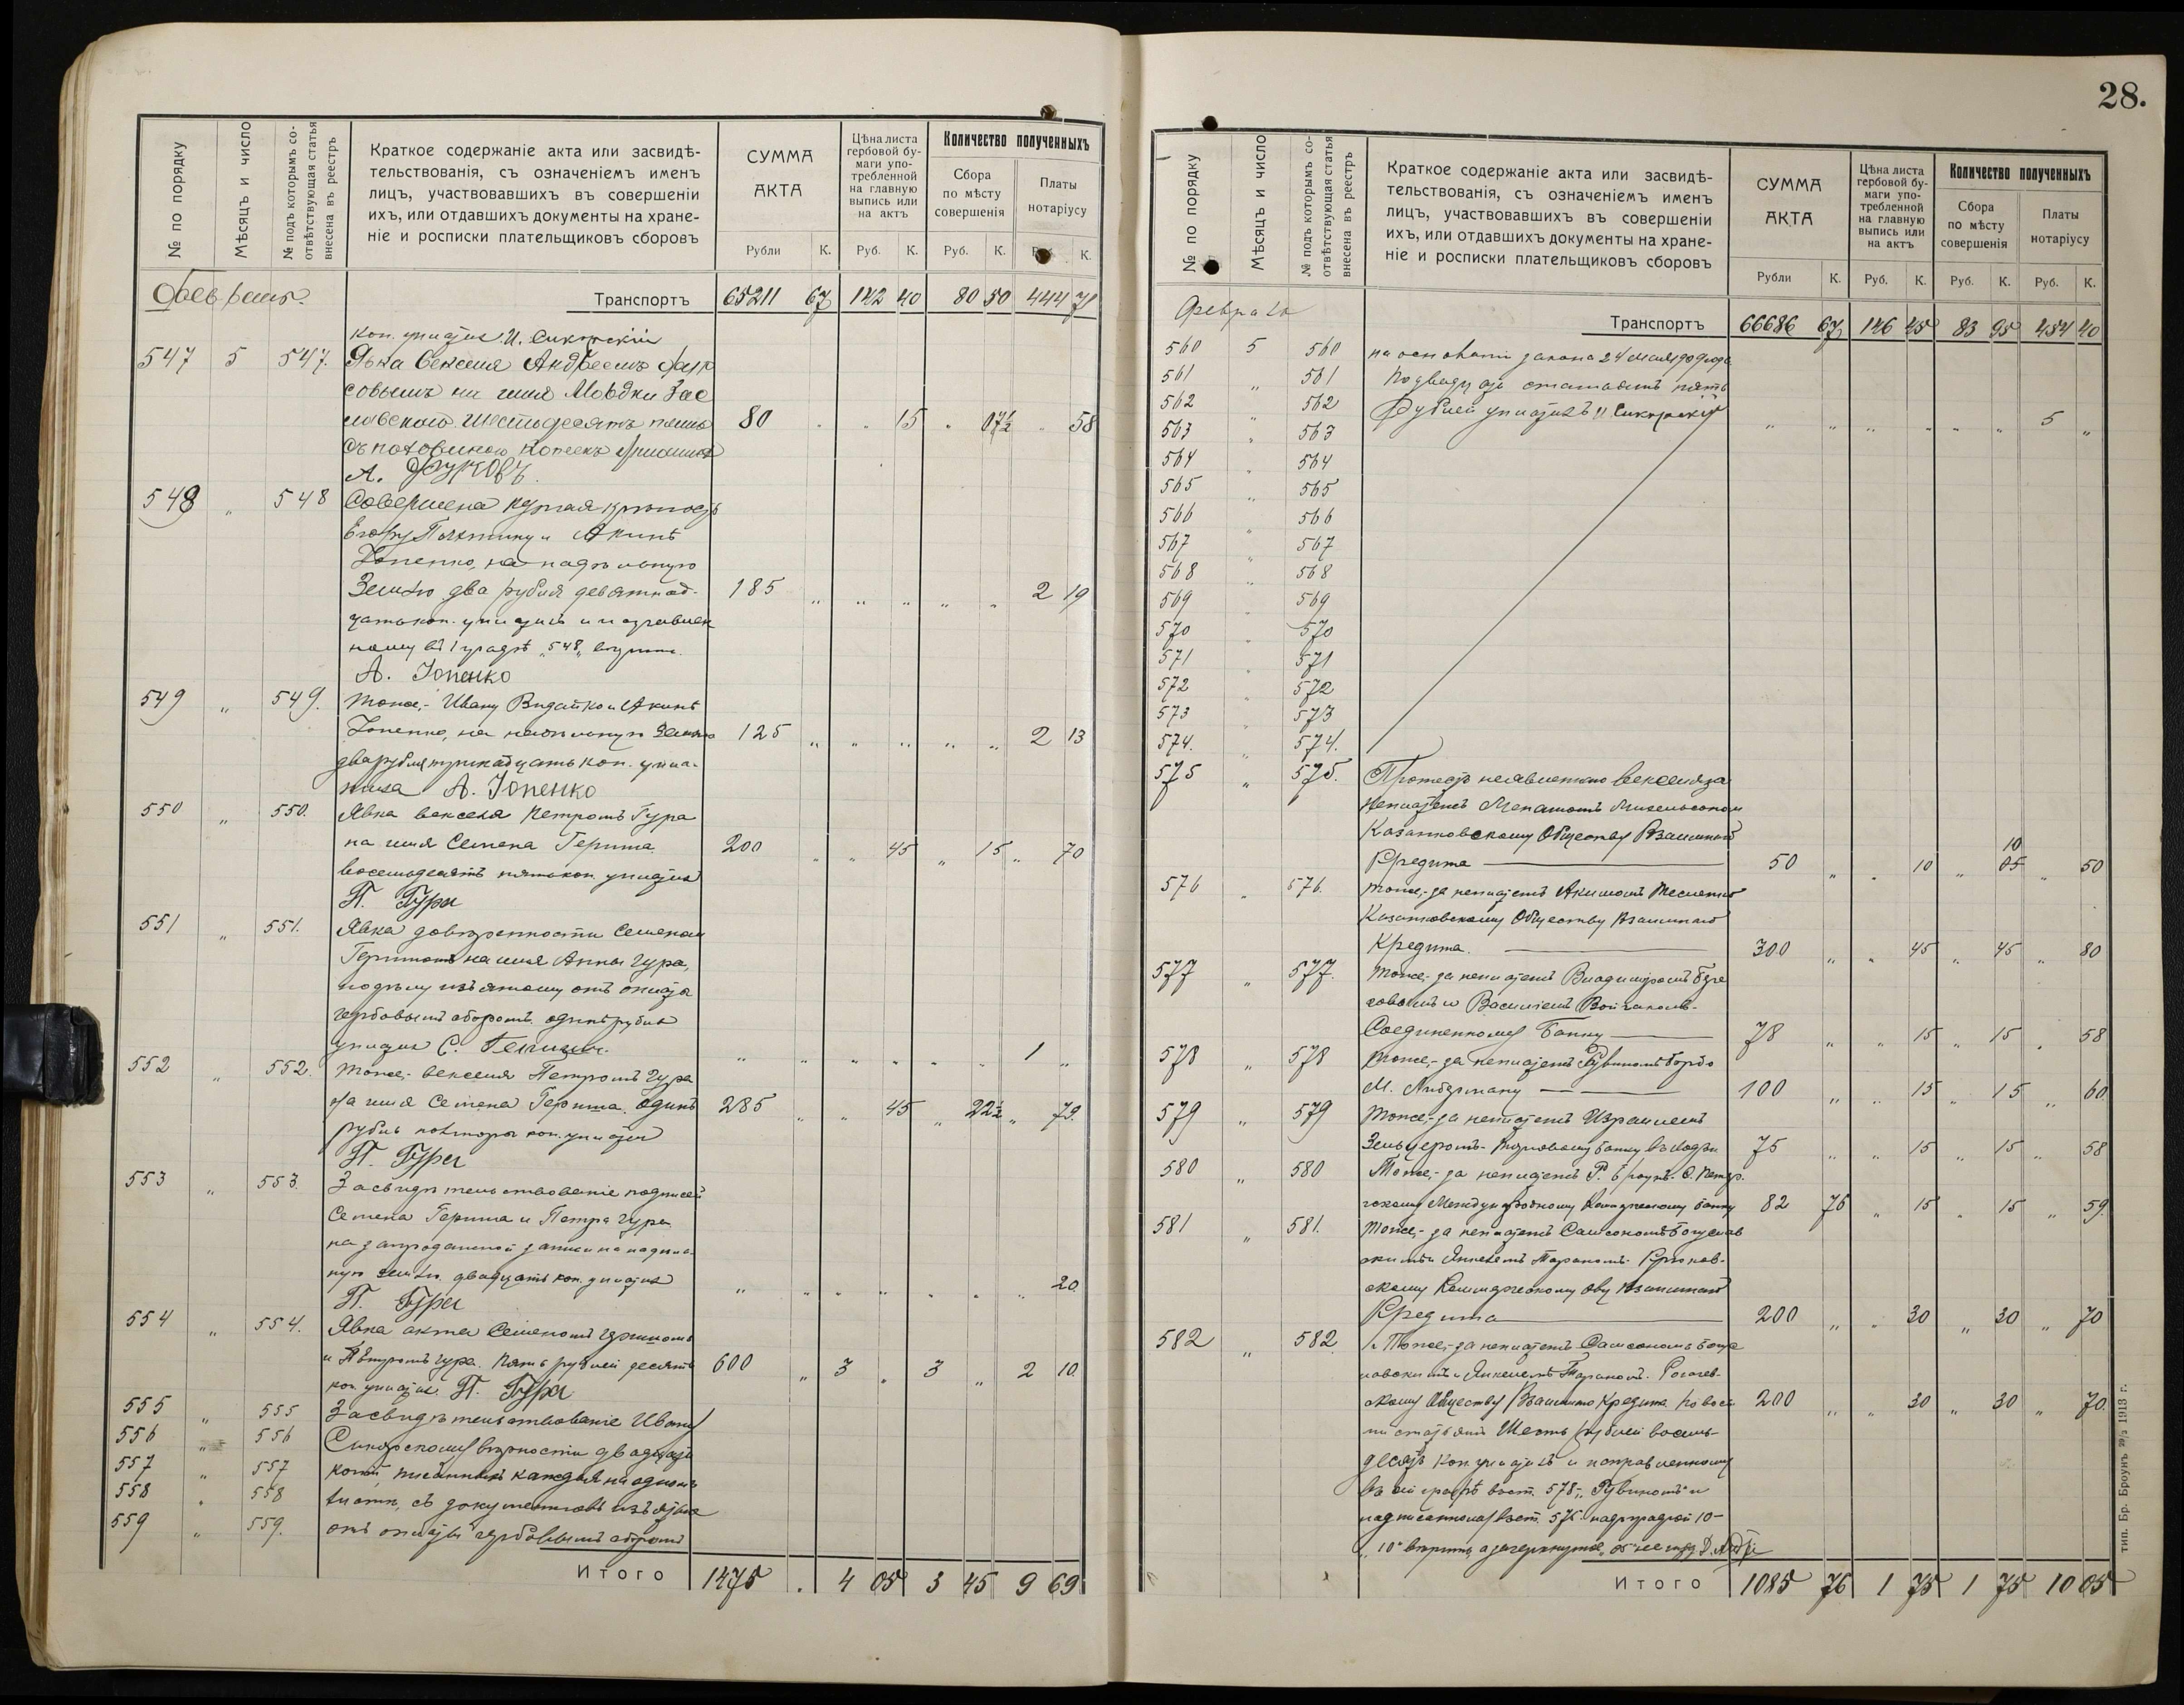 28.
№ по порядку
Мѣсяцъ и число
№ подъ которымъ со-
отвѣтствующая статья
внесена въ реестръ
Краткое содержаніе акта или засвидѣ-
тельствованія, съ означеніемъ именъ
лицъ, участвовавшихъ въ совершеніи
ихъ, или отдавшихъ документы на хране-
ніе и росписки плательщиковъ сборовъ
СУММА
АКТА
Рубли К.
Цѣна листа
гербовой бу-
маги упо-
требленной
на главную
выпись или
на актъ
Руб. К.
Количество полученныхъ
Сбора
по мѣсту
совершенія
Руб. К.
Платы
нотаріусу
Руб. К.
Февраль.
Транспортъ 65211 67 142 40 80 50 444 71
коп. уплатилъ И. Сикорскій
547 5 547. Явка векселя Андреемъ
совымъ на имя Мовдки Зас
лавскаго шестьдесятъ пять 80 " " 15 " 07½ " 58
съ половиною копеекъ уплатилъ
А.
548 " 548 Совершена купчая крѣпость
Егору и Акинѣ
Іопенко, на надѣльную
Землю два рубля девятнад- 185 " " " " " 2 19
цать коп. уплатилъ и исправлен
ному въ 1 графѣ „548„ вѣрить.
А. Іопенко
549 " 549. Тоже,- Ивану и Акинѣ
Іопенко, на надѣльную Землю 125 " " " " " 2 13
два рубля тринадцать коп. упла-
тила А. Іопенко
550 " 550. Явка векселя Петромъ Гура
на имя Семена Герита 200 " " 45 " 15 " 70
восемьдесятъ пять коп. уплатилъ
П. Гура
551 " 551. Явка довѣренности Семеномъ
Геритомъ на имя Анны Гура,
подѣлу изъятому отъ оплаты
гербовымъ сборомъ. одинъ рубль
уплатилъ С. " " " " " " 1 "
552 " 552. Тоже,- векселя Петромъ Гура
На имя Семена Герита. одинъ 285 " " 45 " 22½ " 79.
рубль полторы коп. уплатилъ
П. Гура
553 " 553. Засвидѣтельствованіе подписей
Семена Герита и Петра Гура
на запродажной записи на надѣль-
ную землю. двадцать коп. уплатилъ " " " " " " " 20.
П. Гура
554 " 554. Явка акта Семеномъ Геритомъ
и Петромъ Гура. Пять рублей десять 600 " 3 " 3 " 2 10.
коп. уплатилъ. П. Гура
555 " 555 Засвидѣтельствованіе Ивану
556 " 556 Сикорскому вѣрности двадцати
557 " 557 копій, писанныхъ каждая на одномъ
558 " 558 листѣ, съ документовъ изъятыхъ
559 " 559. отъ оплаты гербовымъ сборомъ
Итого 1475 . 4 05 3 45 9 69
№ по порядку
Мѣсяцъ и число
№ подъ которымъ со-
отвѣтствующая статья
внесена въ реестръ
Краткое содержаніе акта или засвидѣ-
тельствованія, съ означеніемъ именъ
лицъ, участвовавшихъ въ совершеніи
ихъ, или отдавшихъ документы на хране-
ніе и росписки плательщиковъ сборовъ
СУММА
АКТА
Рубли К.
Цѣна листа
гербовой бу-
маги упо-
требленной
на главную
выпись или
на актъ
Руб. К.
Количество полученныхъ
Сбора
по мѣсту
совершенія
Руб. К.
Платы
нотаріусу
Руб. К.
Февраля
Транспортъ 66686 67 146 45 83 95 454 40
560 5 560 на основаніи закона 24 мая 1909 года
561 " 561 По двадцати статьямъ пять
562 " 562 рублей уплатилъ И Сикорскій
563 " 563 " " " " " " 5 "
564 564
565 " 565
566 " 566
567 " 567
568 " 568
569 " 569
570 " 570
571 " 571
572 " 572
573 " 573
574. " 574.
575 " 575. Протестъ неявленнаго векселя за
неплатежъ
Казанковскому Обществу Взаимнаго
10
Кредита 50 " " 10 " 05 " 50
576 " 576. Тоже,- за неплатежъ Акимомъ
Казанковскому Обществу Взаимнаго
Кредита. 300 " " 45 " 45 " 80
577 " 577. Тоже,- за неплатежъ Владиміромъ
и Василіемъ
Соединенному Банку 78 " " 15 " 15 " 58
578 " 578 Тоже,- за неплатежъ Рувиномъ
М. Либерману 100 " " 15 " 15 " 60
579 " 579 Тоже,- за неплатежъ Израилемъ
Торговому банку въ Лодзи 75 " " 15 " 15 " 58
580 " 580 Тоже,- за неплатежъ Р. С. Петер.
гскому Международному Коммерческому банку 82 76 " 15 " 15 " 59.
581 " 581. Тоже,- за неплатежъ Самсономъ Богуслав
скимъ и Янкелемъ Тараномъ. Крюков-
скому Коммерческому Обву Взаимнаго
Кредита 200 " " 30 " 30 " 70
582 " 582 Тоже,- за неплатежъ Самсономъ Богус
лавскимъ и Янкелемъ Тараномъ.
скому Обществу Взаимнаго Кредита. По вось 200 " " 30 " 30 " 70.
ми статьямъ Шесть рублей восемь-
десятъ коп. уплатилъ и исправленному
въ графѣ въ ст. 578 „Рувиномъ" и
надписанному въ ст. 575 надъ графой 10-
„10" вѣрить, а зачеркнутое „05" не
Итого 1085 76 1 75 1 75 10 05
тип. Бр. Броунъ 1913 г.